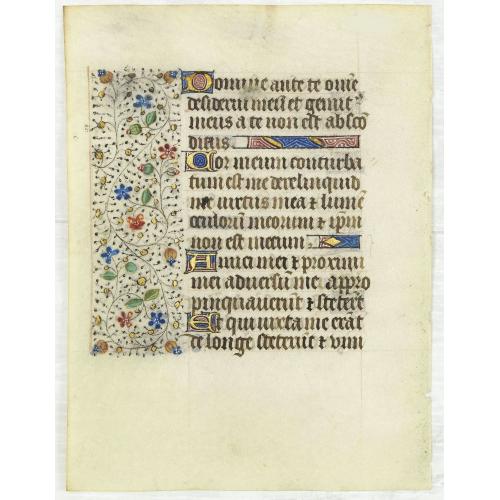 Domine ante te om̄e
desideriū meū et gemit⁹
meus a te non est absco͞
ditus
Cor meum conturba
tum est me dereliquid
me virtus mea ⁊ lumē
oculorū meorum ⁊ ip̄m
non est mecum
Amici mei ⁊ proximi
mei adversū me appro
pinquaverūt ⁊ steterūt
Et qui iuxta me erāt
de longe steterūt ⁊ vim